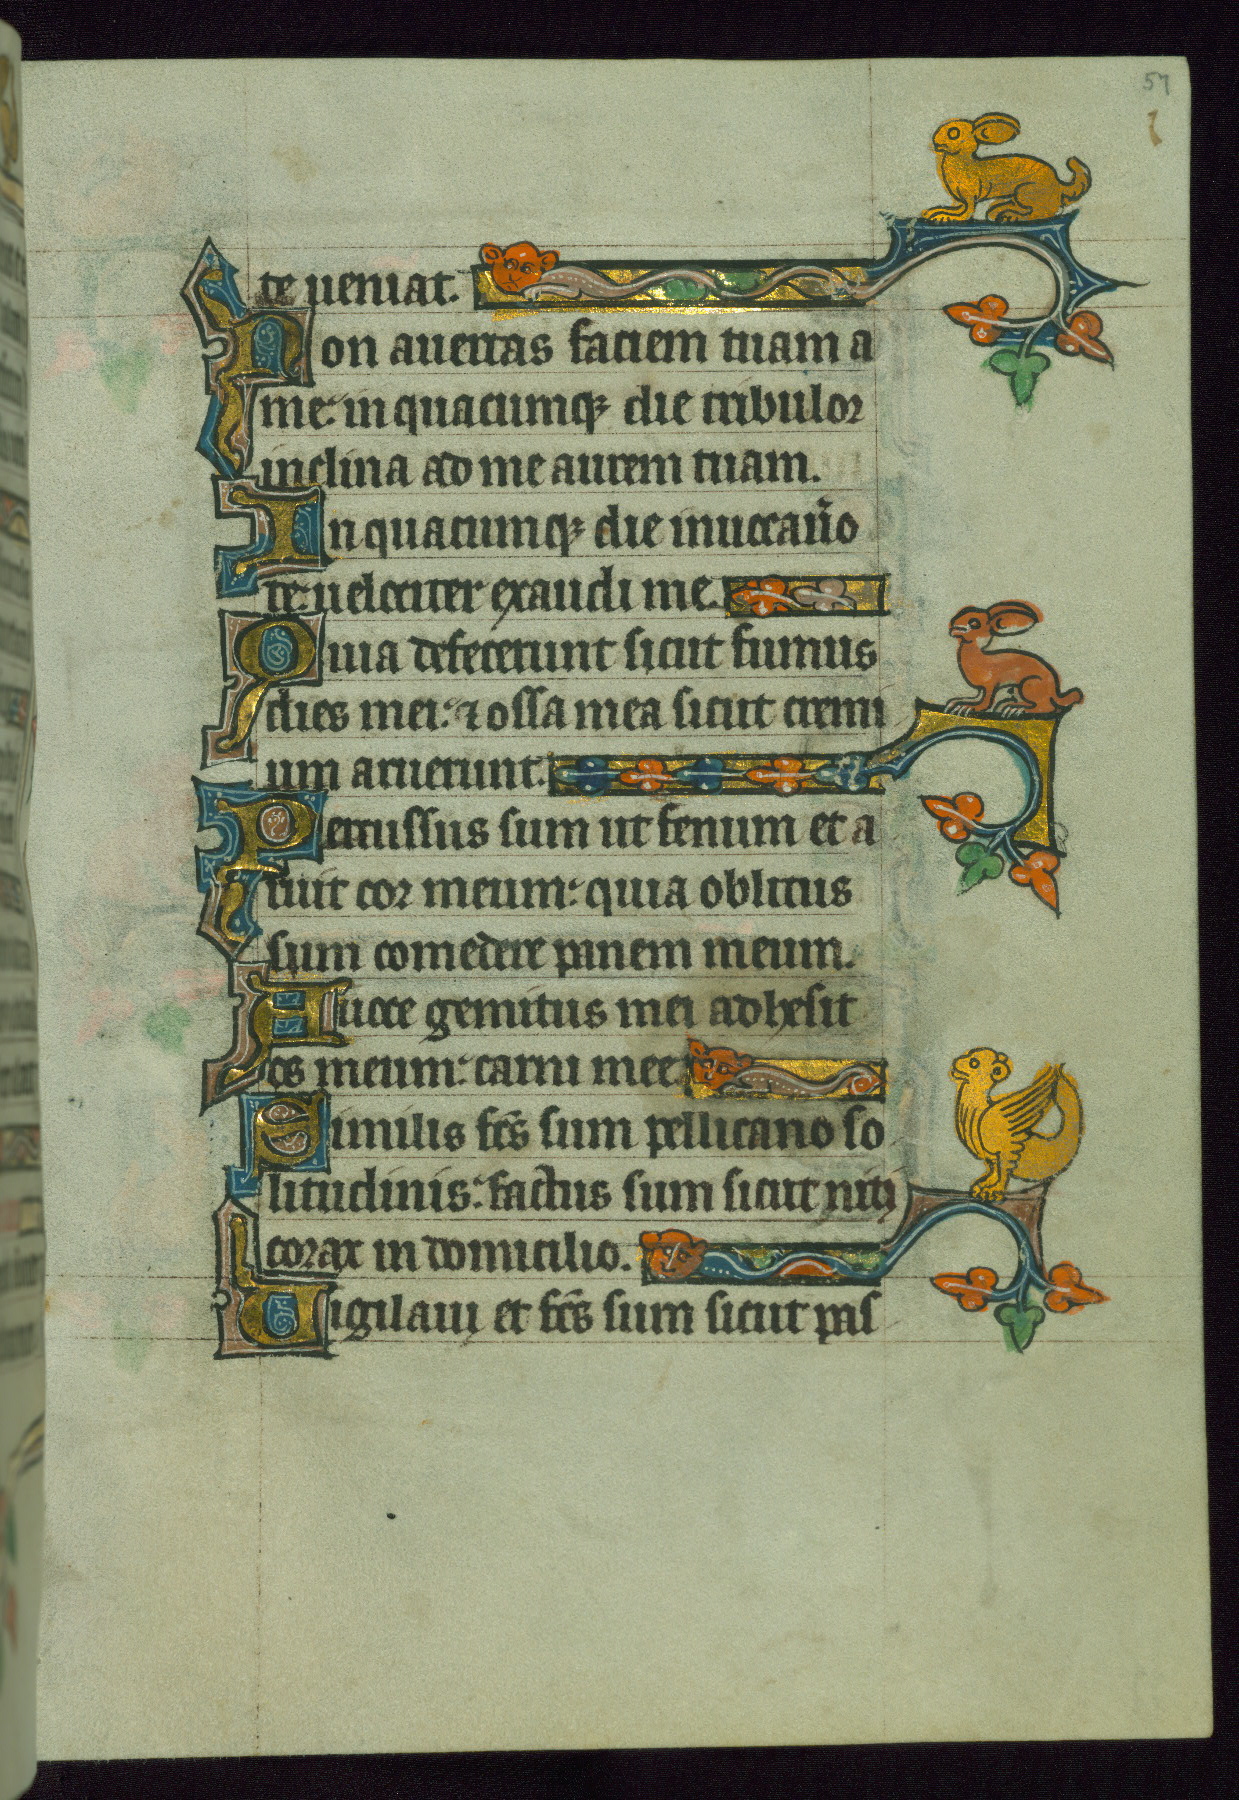 57
te ueniat.
Non auertas faciem tuam a
me: in quacumq; die tribulor
inclina ad me aurem tuam.
In quacumq; die inuocau̅o
te: uelociter exaudi me.
Quia defecerunt sicut fumus
dies mei: ⁊ ossa mea sicut cremi
um aruerunt.
Percussus sum ut fenum et a
ruit cor meum: quia oblitus
sum comedere panem meum.
A uoce gemitus mei adhesit
os meum: carni mee
Similis fc̅s sum pellicano so
litudinis: factus sum sicut niti
corax in domicilio.
Uigilaui et fc̅s sum sicut pas